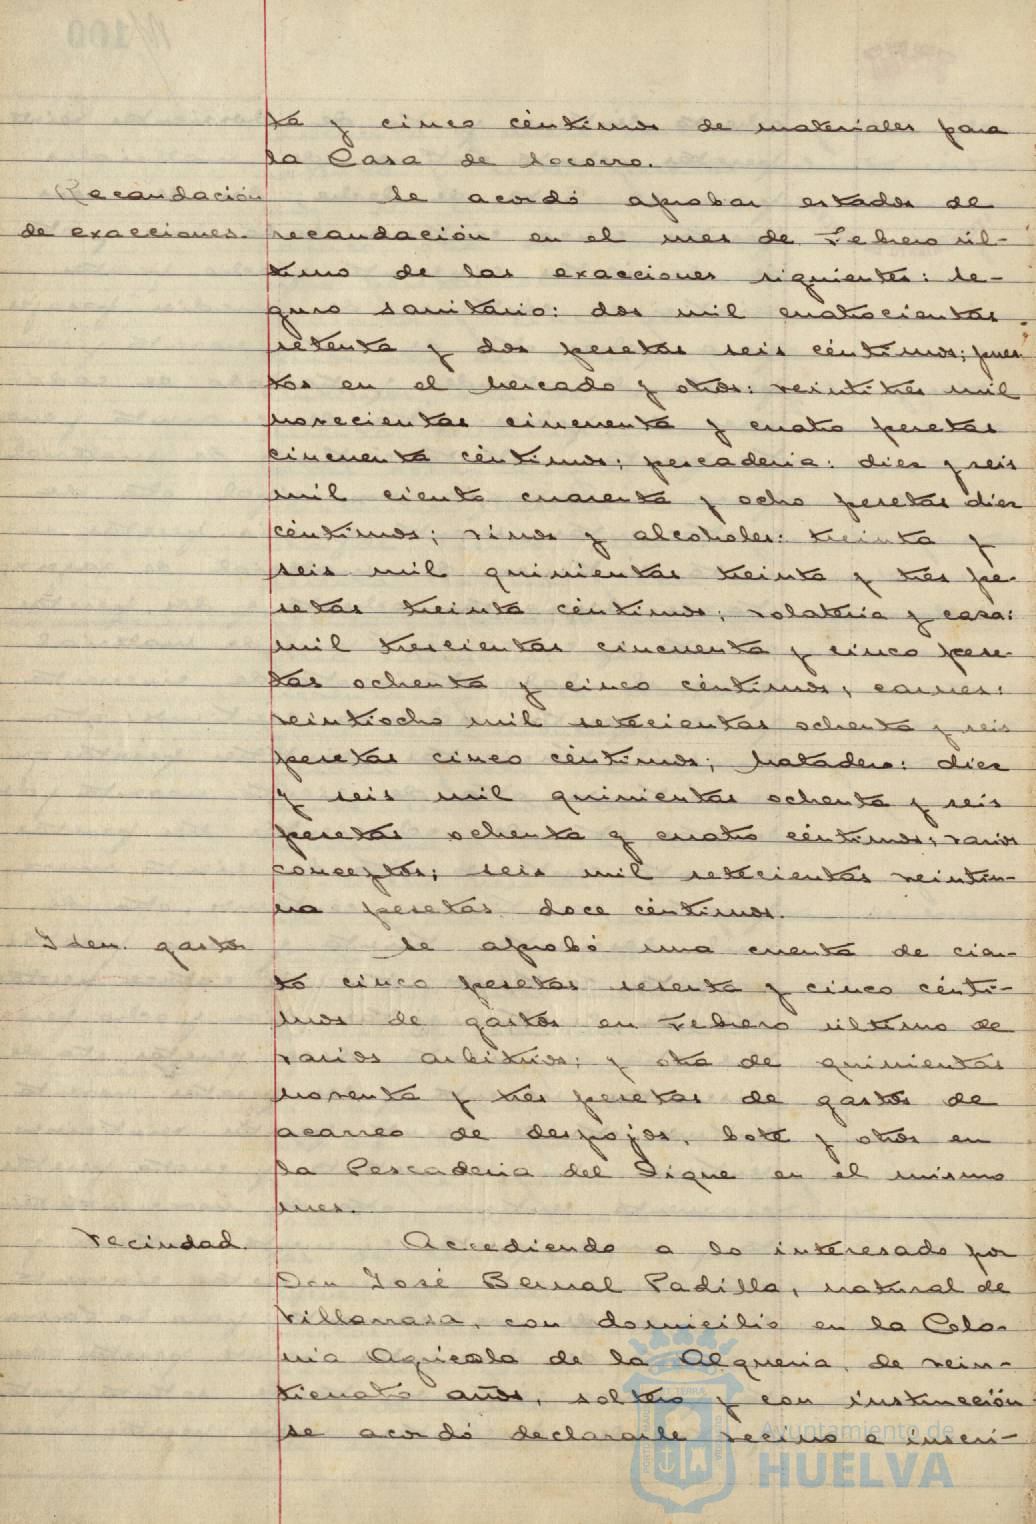 ta y cinco céntimos de materiales para
la Casa de Socorro.
Recaudación
de exacciones.
Se acordó aprobar estados de
recaudación en el mes de Febrero úl-
timo de las exacciones siguientes: Se-
guro sanitario: dos mil cuatrocientas
setenta y dos pesetas seis céntimos; pues-
tos en el Mercado y otros: veintitres mil
novecientas cincuenta y cuatro pesetas
cincuenta céntimos; pescadería: diez y seis
mil ciento cuarenta y ocho pesetas diez
céntimos; vinos y alcoholes: treinta y
seis mil quinientas treinta y tres pe-
setas treinta céntimos; volatería y caza:
mil trescientas cincuenta y cinco pese-
tas ochenta y cinco céntimos; carnes:
veintiocho mil setecientas ochenta y seis
pesetas cinco céntimos; Matadero: diez
y seis mil quinientas ochenta y seis
pesetas ochenta y cuatro céntimos; varios
conceptos; seis mil setecientas veintiu-
na pesetas doce céntimos.
Iden. gastos
Se aprobó una cuenta de cien-
to cinco pesetas sesenta y cinco cénti-
mos de gastos en Febrero último de
varios arbitrios; y otra de quinientas
noventa y tres pesetas de gastos de
acarreo de despojos, bote y otros en
la Pescadería del Dique en el mismo
mes.
Vecindad.
Accediendo a lo interesado por
Don José Bernal Padilla, natural de
Villarrasa, con domicilio en la Colo-
nia Agrícola de la Alquería, de vein-
ticuatro años, soltero y con instrucción
se acordó declararle vecino e inscri-
Ayuntamiento de
HUELVA